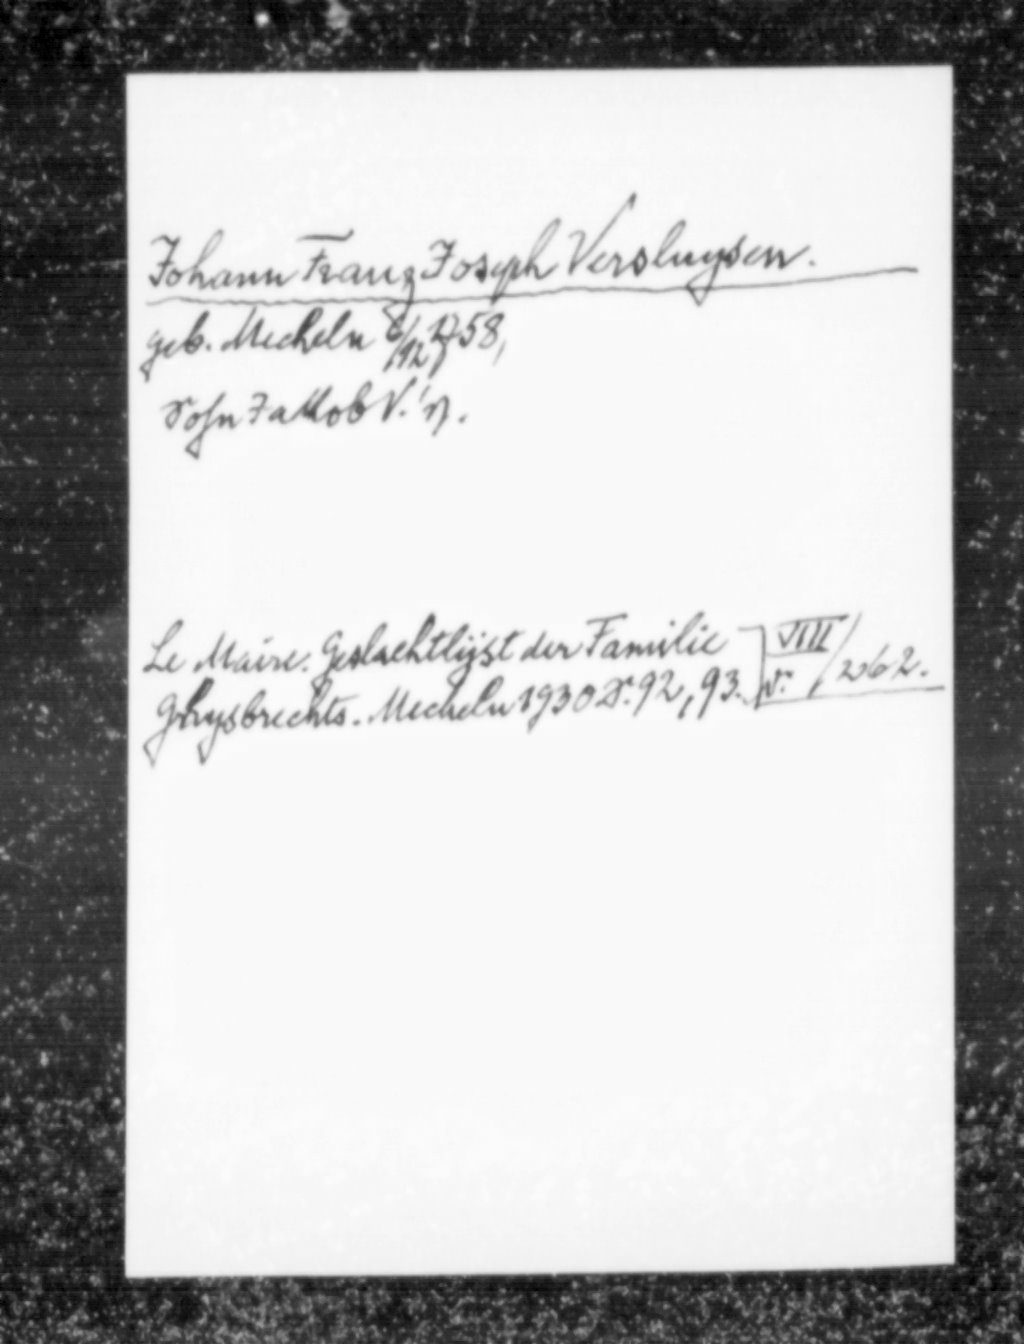 Johann Franz Joseph Versluysen.
geb. Mecheln 8/12 1758,
Sohn Jakob V.'s.
Le Maire. Geslachtlijst der Familie
Ghysbrechts. Mecheln 1930 S. 92, 93.
VIII
V. / 262.